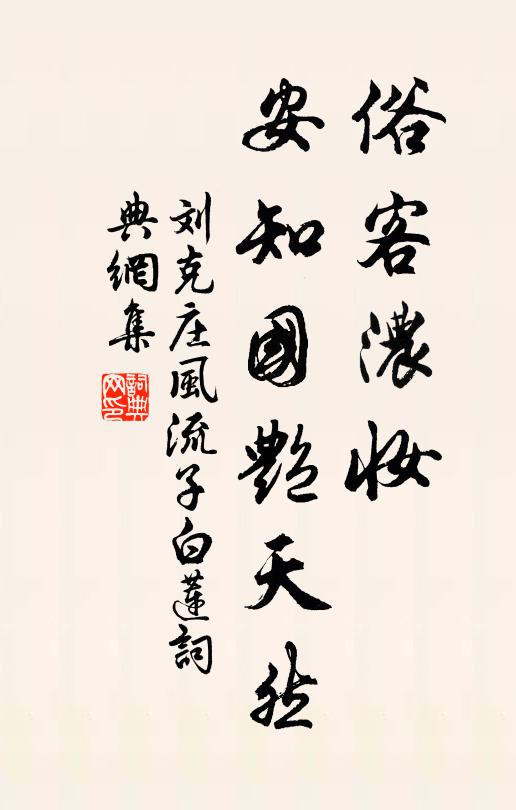 俗客濃妝
安知國艷天然
刘克庄風流子白蓮詞
典網集
詞典網印